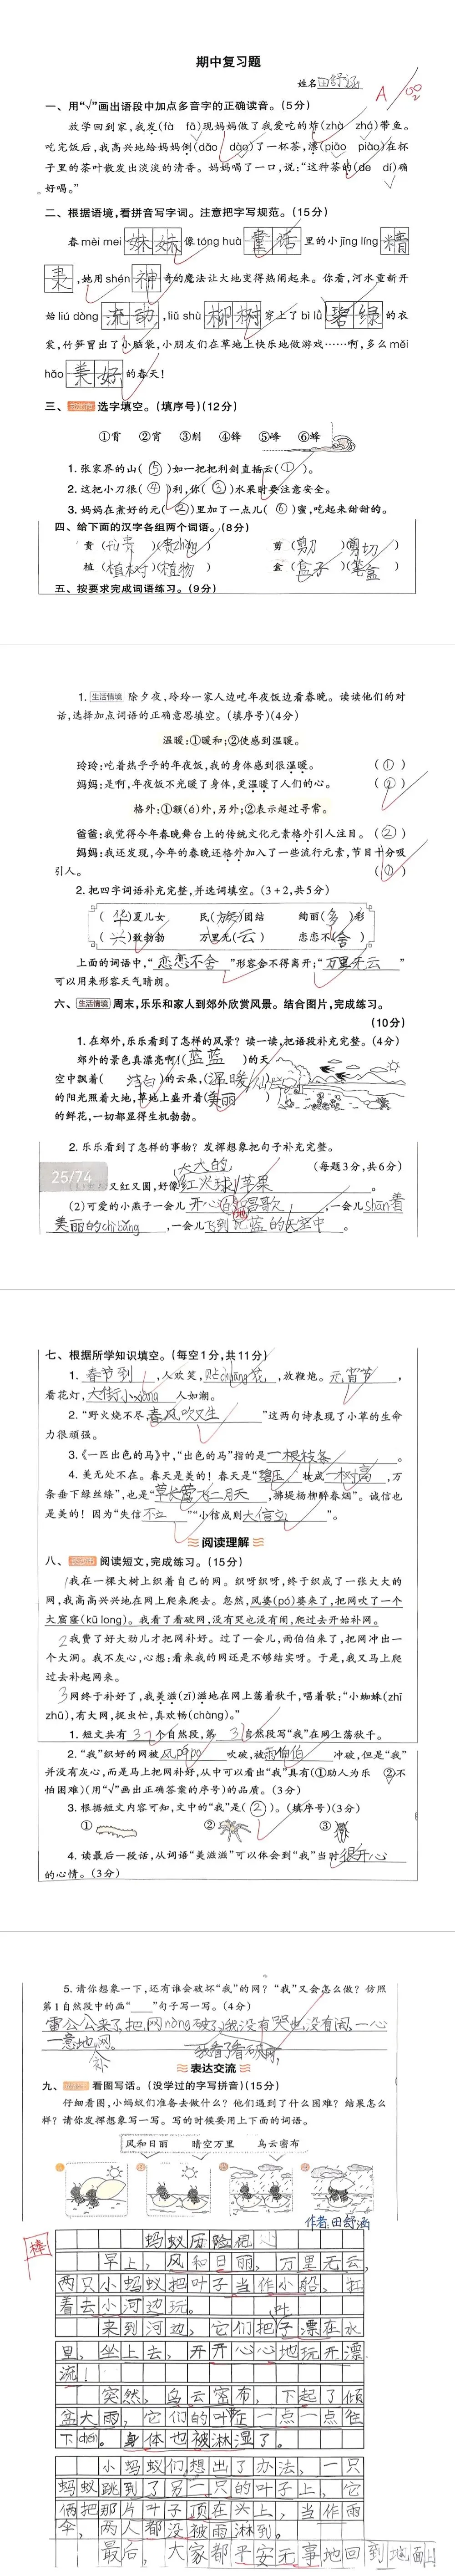 期中复习题
姓名田舒涵
A
一、用“√”画出语段中加点多音字的正确读音。(5分)
放学回到家,我发(fà fā)现妈妈做了我爱吃的炸(zhà zhá)带鱼。
吃完饭后,我高兴地给妈妈倒(dǎo dào)了一杯茶,漂(piāo piào)在杯
子里的茶叶散发出淡淡的清香。妈妈喝了一口,说:“这种茶的(de dí)确
好喝。”
二、根据语境,看拼音写字词。注意把字写规范。(15分)
春mèi mei妹妹像tóng huà童话里的小jīng líng精
灵,她用shén神奇的魔法让大地变得热闹起来。你看,河水重新开
始liú dòng流动,liǔ shù柳树穿上了bì lǜ碧绿的衣
裳,竹笋冒出了小脑袋,小朋友们在草地上快乐地做游戏……啊,多么měi
hǎo美好的春天!
三、选字填空。(填序号)(12分)
①肖 ②宵 ③削 ④锋 ⑤峰 ⑥蜂
1. 张家界的山(⑤)如一把把利剑直插云(①)。
2. 这把小刀很(④)利,你(③)水果时要注意安全。
3. 妈妈在煮好的元(②)里加了一点儿(⑥)蜜,吃起来甜甜的。
四、给下面的汉字各组两个词语。(8分)
贵( 贵)(贵zhòng) 剪(剪刀)(剪切)
植(植树)(植物) 盒(盒子)(笔盒)
五、按要求完成词语练习。(9分)
1. 生活情境 除夕夜,玲玲一家人边吃年夜饭边看春晚。读读他们的对
话,选择加点词语的正确意思填空。(填序号)(4分)
温暖:①暖和;②使感到温暖。
玲玲:吃着热乎乎的年夜饭,我的身体感到很温暖。 (①)
妈妈:是啊,年夜饭不光暖了身体,更温暖了人们的心。 (②)
格外:①额(é)外,另外;②表示超过寻常。
爸爸:我觉得今年春晚舞台上的传统文化元素格外引人注目。(②)
妈妈:我还发现,今年的春晚还格外加入了一些流行元素,节目十分吸
引人。 (①)
2. 把四字词语补充完整,并选词填空。(3+2,共5分)
(华)夏儿女 民(族)团结 绚丽(多)彩
(兴)致勃勃 万里无(云) 恋恋不(舍)
上面的词语中,“恋恋不舍”形容舍不得离开;“万里无云”
可以用来形容天气晴朗。
六、生活情境 周末,乐乐和家人到郊外欣赏风景。结合图片,完成练习。
(10分)
1. 在郊外,乐乐看到了怎样的风景?读一读,把语段补充完整。(4分)
郊外的景色真漂亮啊!(蓝蓝)的天
空中飘着(洁白)的云朵,(温暖)
的阳光照着大地,草地上盛开着(美丽)
的鲜花,一切都显得生机勃勃。
2. 乐乐看到了怎样的事物?发挥想象把句子补充完整。
(每题3分,共6分)
25/74
又红又圆,好像大大的红火球/苹果
(2)可爱的小燕子一会儿开心地唱歌,一会儿shān着
美丽的chì bǎng,一会儿飞到 蓝的天空中。
七、根据所学知识填空。(每空1分,共11分)
1. 春节到,人欢笑,贴chuāng花,放鞭炮。元宵节,
看花灯,大街小xiàng人如潮。
2. “野火烧不尽,春风吹又生”这两句诗表现了小草的生命
力很顽强。
3. 《一匹出色的马》中,“出色的马”指的是一根枝条。
4. 美无处不在。春天是美的!春天是“碧玉妆成一树高,万
条垂下绿丝绦”,也是“草长莺飞二月天,拂堤杨柳醉春烟”。诚信也
是美的!因为“失信不立”“小信成则大信立”。
阅读理解
八、阅读短文,完成练习。(15分)
1我在一棵大树上织着自己的网。织呀织呀,终于织成了一张大大的
网,我高高兴兴地在网上爬来爬去。忽然,风婆(pó)婆来了,把网吹了一个
大窟窿(kū long)。我看了看破网,没有哭也没有闹,爬过去开始补网。
2我费了好大劲儿才把网补好。过了一会儿,雨伯伯来了,把网冲出一
个大洞。我不灰心,心想:看来我的网还是不够结实呀。于是,我又马上爬
过去补起网来。
3网终于补好了,我美滋(zī)滋地在网上荡着秋千,唱着歌:“小蜘蛛(zhī
zhū),有大网,捉虫忙,真欢畅(chàng)。”
1. 短文共有3个自然段,第3自然段写“我”在网上荡秋千。
2. “我”织好的网被风pópo吹破,被雨伯伯冲破,但是“我”
并没有灰心,而是马上把网补好,从中可以看出“我”具有(①助人为乐 ②不
怕困难)(用“√”画出正确答案的序号)的品质。(3分)
3. 根据短文内容可知,文中的“我”是(②)。(填序号)(3分)
① ② ③
4. 读最后一段话,从词语“美滋滋”可以体会到“我”当时很开心
的心情。(3分)
5. 请你想象一下,还有谁会破坏“我”的网?“我”又会怎么做?仿照
第1自然段中的画“___”句子写一写。(4分)
雷公公来了,把网nòng破了,我没有哭也没有闹,一心
一意地 网。 我看了看破网,
表达交流
九、看图写话。(没学过的字写拼音)(15分)
仔细看图,小蚂蚁们准备去做什么?他们遇到了什么困难?结果怎么
样?请你发挥想象写一写。写的时候要用上下面的词语。
风和日丽 晴空万里 乌云密布
作者:田舒涵
棒
蚂蚁历险记
早上,风和日丽,万里无云,
两只小蚂蚁把叶子当作小船,扛
着去小河边玩。
来到河边,它们把叶子漂在水
里,坐上去,开开心心地玩开漂
流!
突然,乌云密布,下起了倾
盆大雨,它们的叶 一点一点往
下chén。身体也被淋湿了。
小蚂蚁们想出了办法,一只
蚂蚁跳到了另一只的叶子上,它
俩把那片叶子顶在头上,当作雨
伞,两人都没被雨淋到。
最后,大家都平安无事地回到地面!